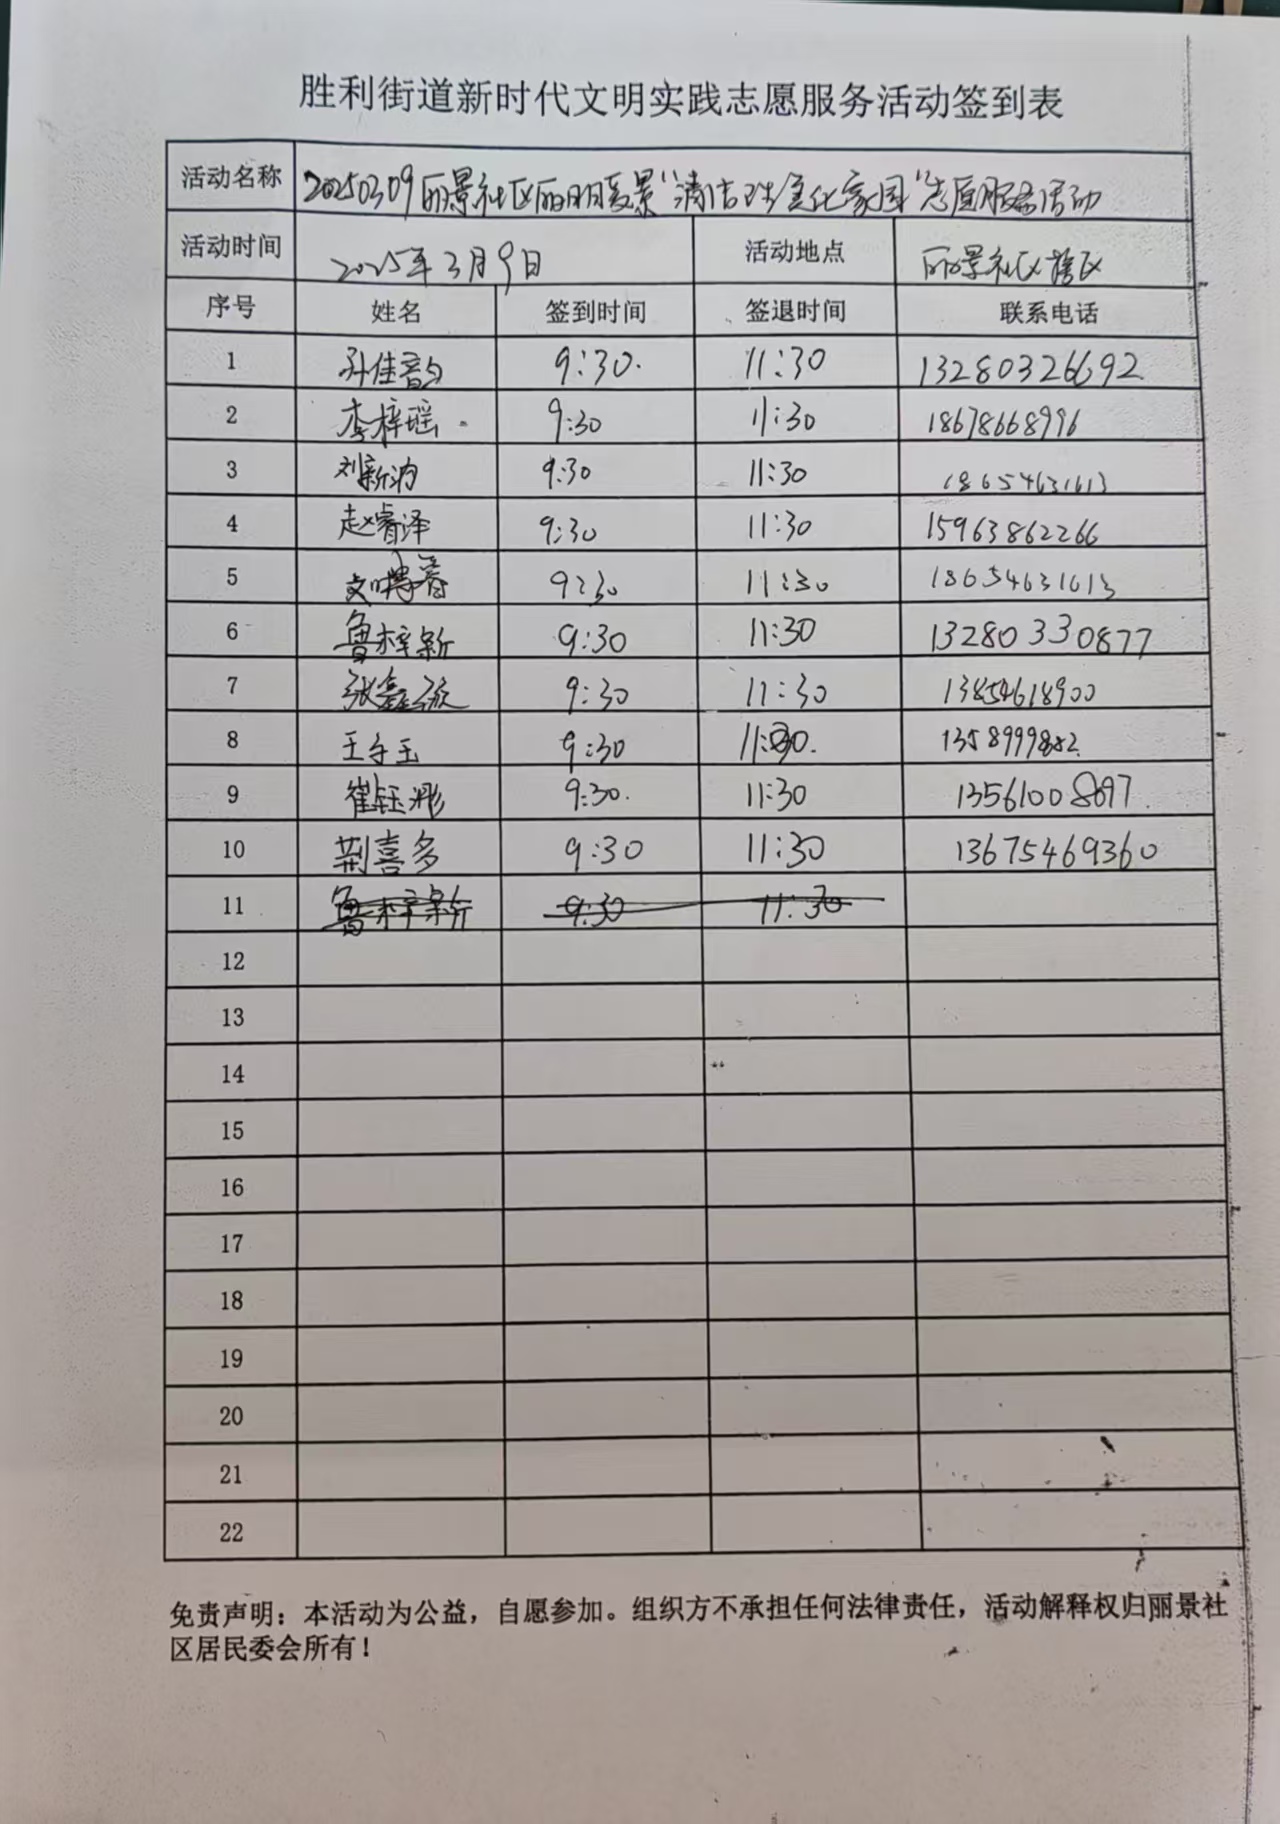 胜利街道新时代文明实践志愿服务活动签到表
活动名称 20250309丽景社区丽明夏景"清洁环 美化家园"志愿服务活动
活动时间 2025年3月9日 活动地点 丽景社区辖区
序号 姓名 签到时间 签退时间 联系电话
1 孙佳韵 9:30. 11:30 13280326692
2 李梓瑶 9:30 11:30 18678668996
3 刘新 9:30 11:30 18654631613
4 赵睿泽 9:30 11:30 15963862266
5 9:30 11:30 18654631613
6 鲁梓新 9:30 11:30 13280330877
7 张鑫 9:30 11:30 13854618900
8 王子玉 9:30 11:30. 1358999852
9 崔钰彤 9:30. 11:30 13561008697.
10 荆喜多 9:30 11:30 13675469360
11 鲁梓新 9:30 11:30
12
13
14
15
16
17
18
19
20
21
22
免责声明：本活动为公益，自愿参加。组织方不承担任何法律责任，活动解释权归丽景社
区居民委会所有！